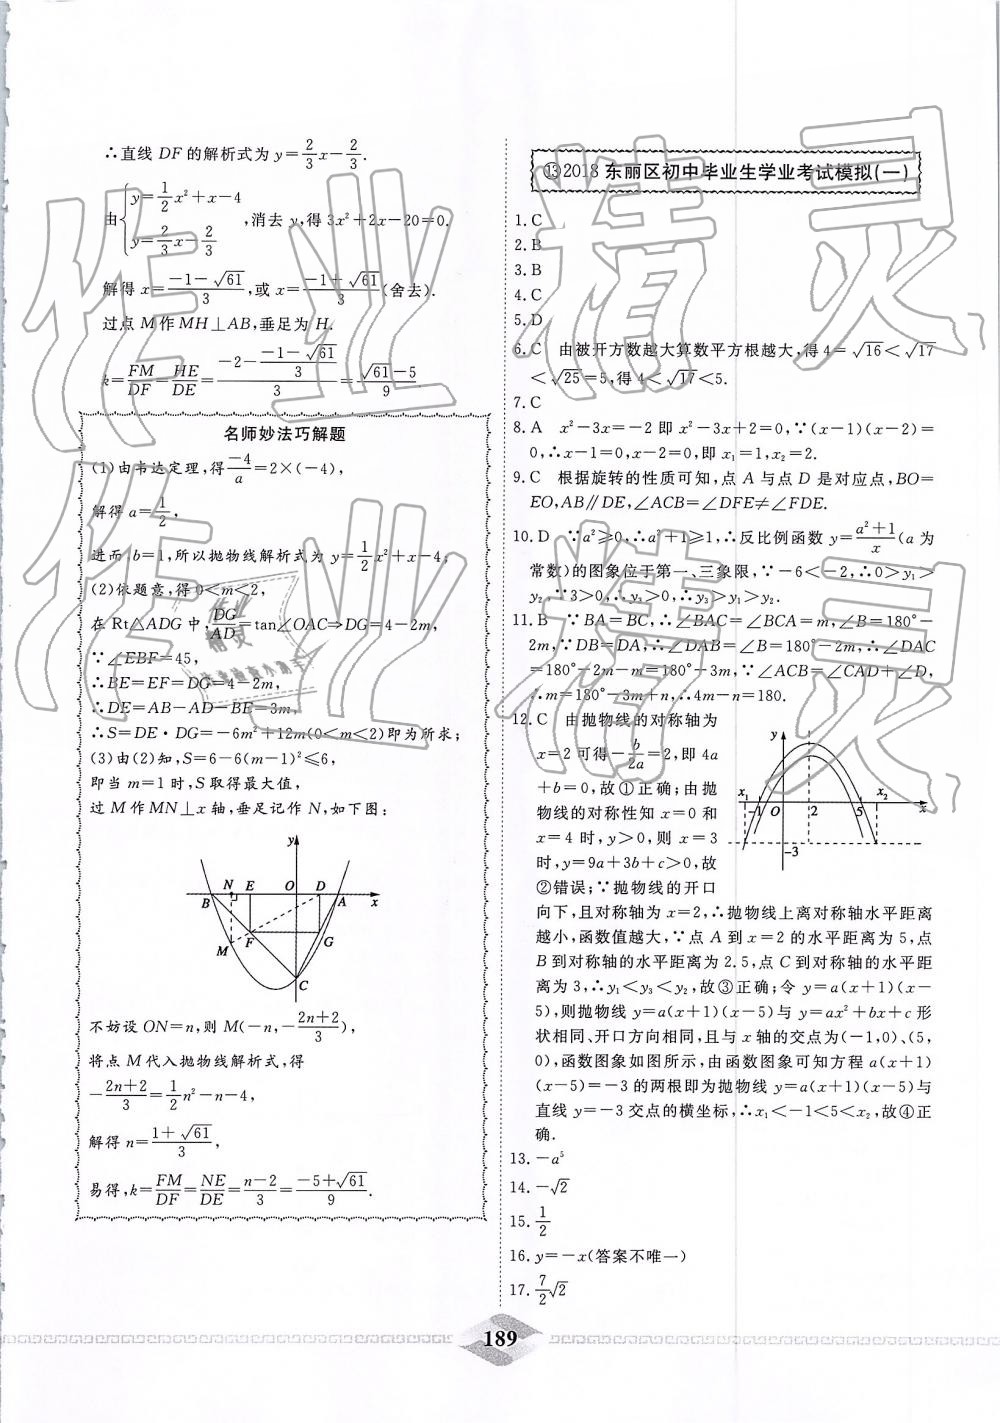 ∴直线 DF 的解析式为 y=2/3x-2/3.
由{y=1/2x²+x-4, y=2/3x-2/3 ,消去 y,得 3x²+2x-20=0.
解得 x=(-1-√61)/3,或 x=(-1+√61)/3(舍去).
过点 M 作 MH⊥AB,垂足为 H.
k=FM/DF=HE/DE=(-2-(-1-√61)/3)/3=(√61-5)/9
名师妙法巧解题
(1)由韦达定理,得-4/a=2×(-4),
解得 a=1/2,
进而 b=1,所以抛物线解析式为 y=1/2x²+x-4,
(2)依题意,得 0<m<2,
在 Rt△ADG 中,DG/AD=tan∠OAC⇒DG=4-2m,
∵∠EBF=45,
∴BE=EF=DG=4-2m,
∴DE=AB-AD-BE=3m,
∴S=DE·DG=-6m²+12m(0<m<2)即为所求;
(3)由(2)知,S=6-6(m-1)²≤6,
即当 m=1 时,S 取得最大值,
过 M 作 MN⊥x 轴,垂足记作 N,如下图:
y
N E O D
B A x
F G
M
C
不妨设 ON=n,则 M(-n,-(2n+2)/3),
将点 M 代入抛物线解析式,得
-(2n+2)/3=1/2n²-n-4,
解得 n=(1+√61)/3,
易得,k=FM/DF=NE/DE=(n-2)/3=(-5+√61)/9.
⑬2018 东丽区初中毕业生学业考试模拟(一)
1.C
2.B
3.B
4.C
5.D
6.C 由被开方数越大算数平方根越大,得 4=√16<√17
<√25=5,得 4<√17<5.
7.C
8.A x²-3x=-2 即 x²-3x+2=0,∵(x-1)(x-2)=
0,∴x-1=0,x-2=0,即 x₁=1,x₂=2.
9.C 根据旋转的性质可知,点 A 与点 D 是对应点,BO=
EO,AB∥DE,∠ACB=∠DFE≠∠FDE.
10.D ∵a²≥0,∴a²+1≥1,∴反比例函数 y=(a²+1)/x(a 为
常数)的图象位于第一、三象限,∵-6<-2,∴0>y₁>
y₂,∵3>0,∴y₃>0,∴y₃>y₁>y₂.
11.B ∵BA=BC,∴∠BAC=∠BCA=m,∠B=180°-
2m,∵DB=DA,∴∠DAB=∠B=180°-2m,∴∠DAC
=180°-2m-m=180°-3m,∵∠ACB=∠CAD+∠D,
∴m=180°-3m+n,∴4m-n=180.
12.C 由抛物线的对称轴为
x=2 可得-b/2a=2,即 4a
+b=0,故①正确;由抛
物线的对称性知 x=0 和
x=4 时,y>0,则 x=3
时,y=9a+3b+c>0,故
②错误;∵抛物线的开口
y
x₁ -1 O 2 5 x₂ x
-3
向下,且对称轴为 x=2,∴抛物线上离对称轴水平距离
越小,函数值越大,∵点 A 到 x=2 的水平距离为 5,点
B 到对称轴的水平距离为 2.5,点 C 到对称轴的水平距
离为 3,∴y₁<y₃<y₂,故③正确;令 y=a(x+1)(x-
5),则抛物线 y=a(x+1)(x-5)与 y=ax²+bx+c 形
状相同、开口方向相同,且与 x 轴的交点为(-1,0)、(5,
0),函数图象如图所示,由函数图象可知方程 a(x+1)
(x-5)=-3 的两根即为抛物线 y=a(x+1)(x-5)与
直线 y=-3 交点的横坐标,∴x₁<-1<5<x₂,故④正
确.
13.-a⁵
14.-√2
15.1/2
16.y=-x(答案不唯一)
17.7/2√2
189
作业精灵
作业精灵